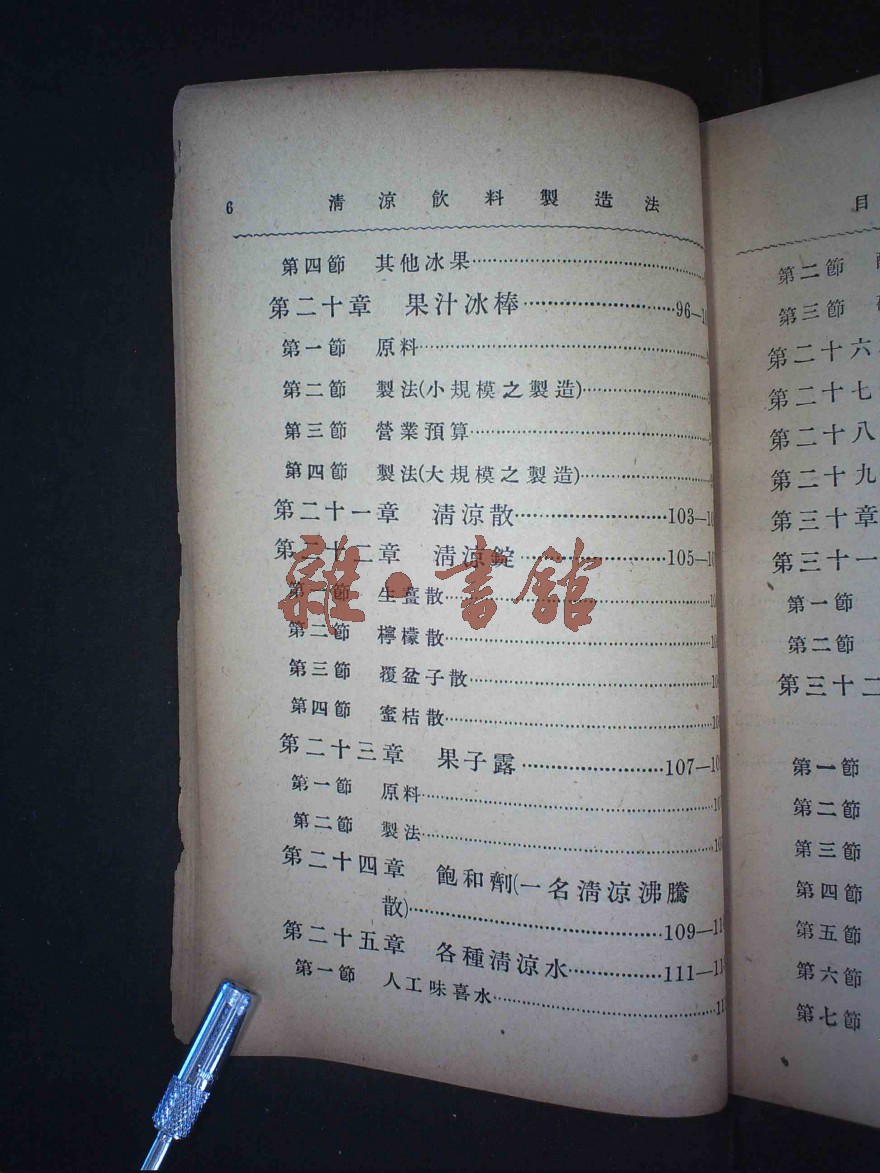 6 清涼飲料製造法
第四節 其他冰果
第二十章 果汁冰棒 96—1
第一節 原料
第二節 製法(小規模之製造)
第三節 營業預算
第四節 製法(大規模之製造)
第二十一章 清涼散 103—10
第二十二章 清涼錠 105—10
第一節 生薑散 10
第二節 檸檬散 10
第三節 覆盆子散 10
第四節 蜜桔散 10
第二十三章 果子露 107—10
第一節 原料 10
第二節 製法 10
第二十四章 飽和劑(一名清涼沸騰
散) 109—11
第二十五章 各種清涼水 111—11
第一節 人工味喜水 11
雜·書館
目
第二節
第三節
第二十六
第二十七
第二十八
第二十九
第三十章
第三十一
第一節
第二節
第三十二
第一節
第二節
第三節
第四節
第五節
第六節
第七節